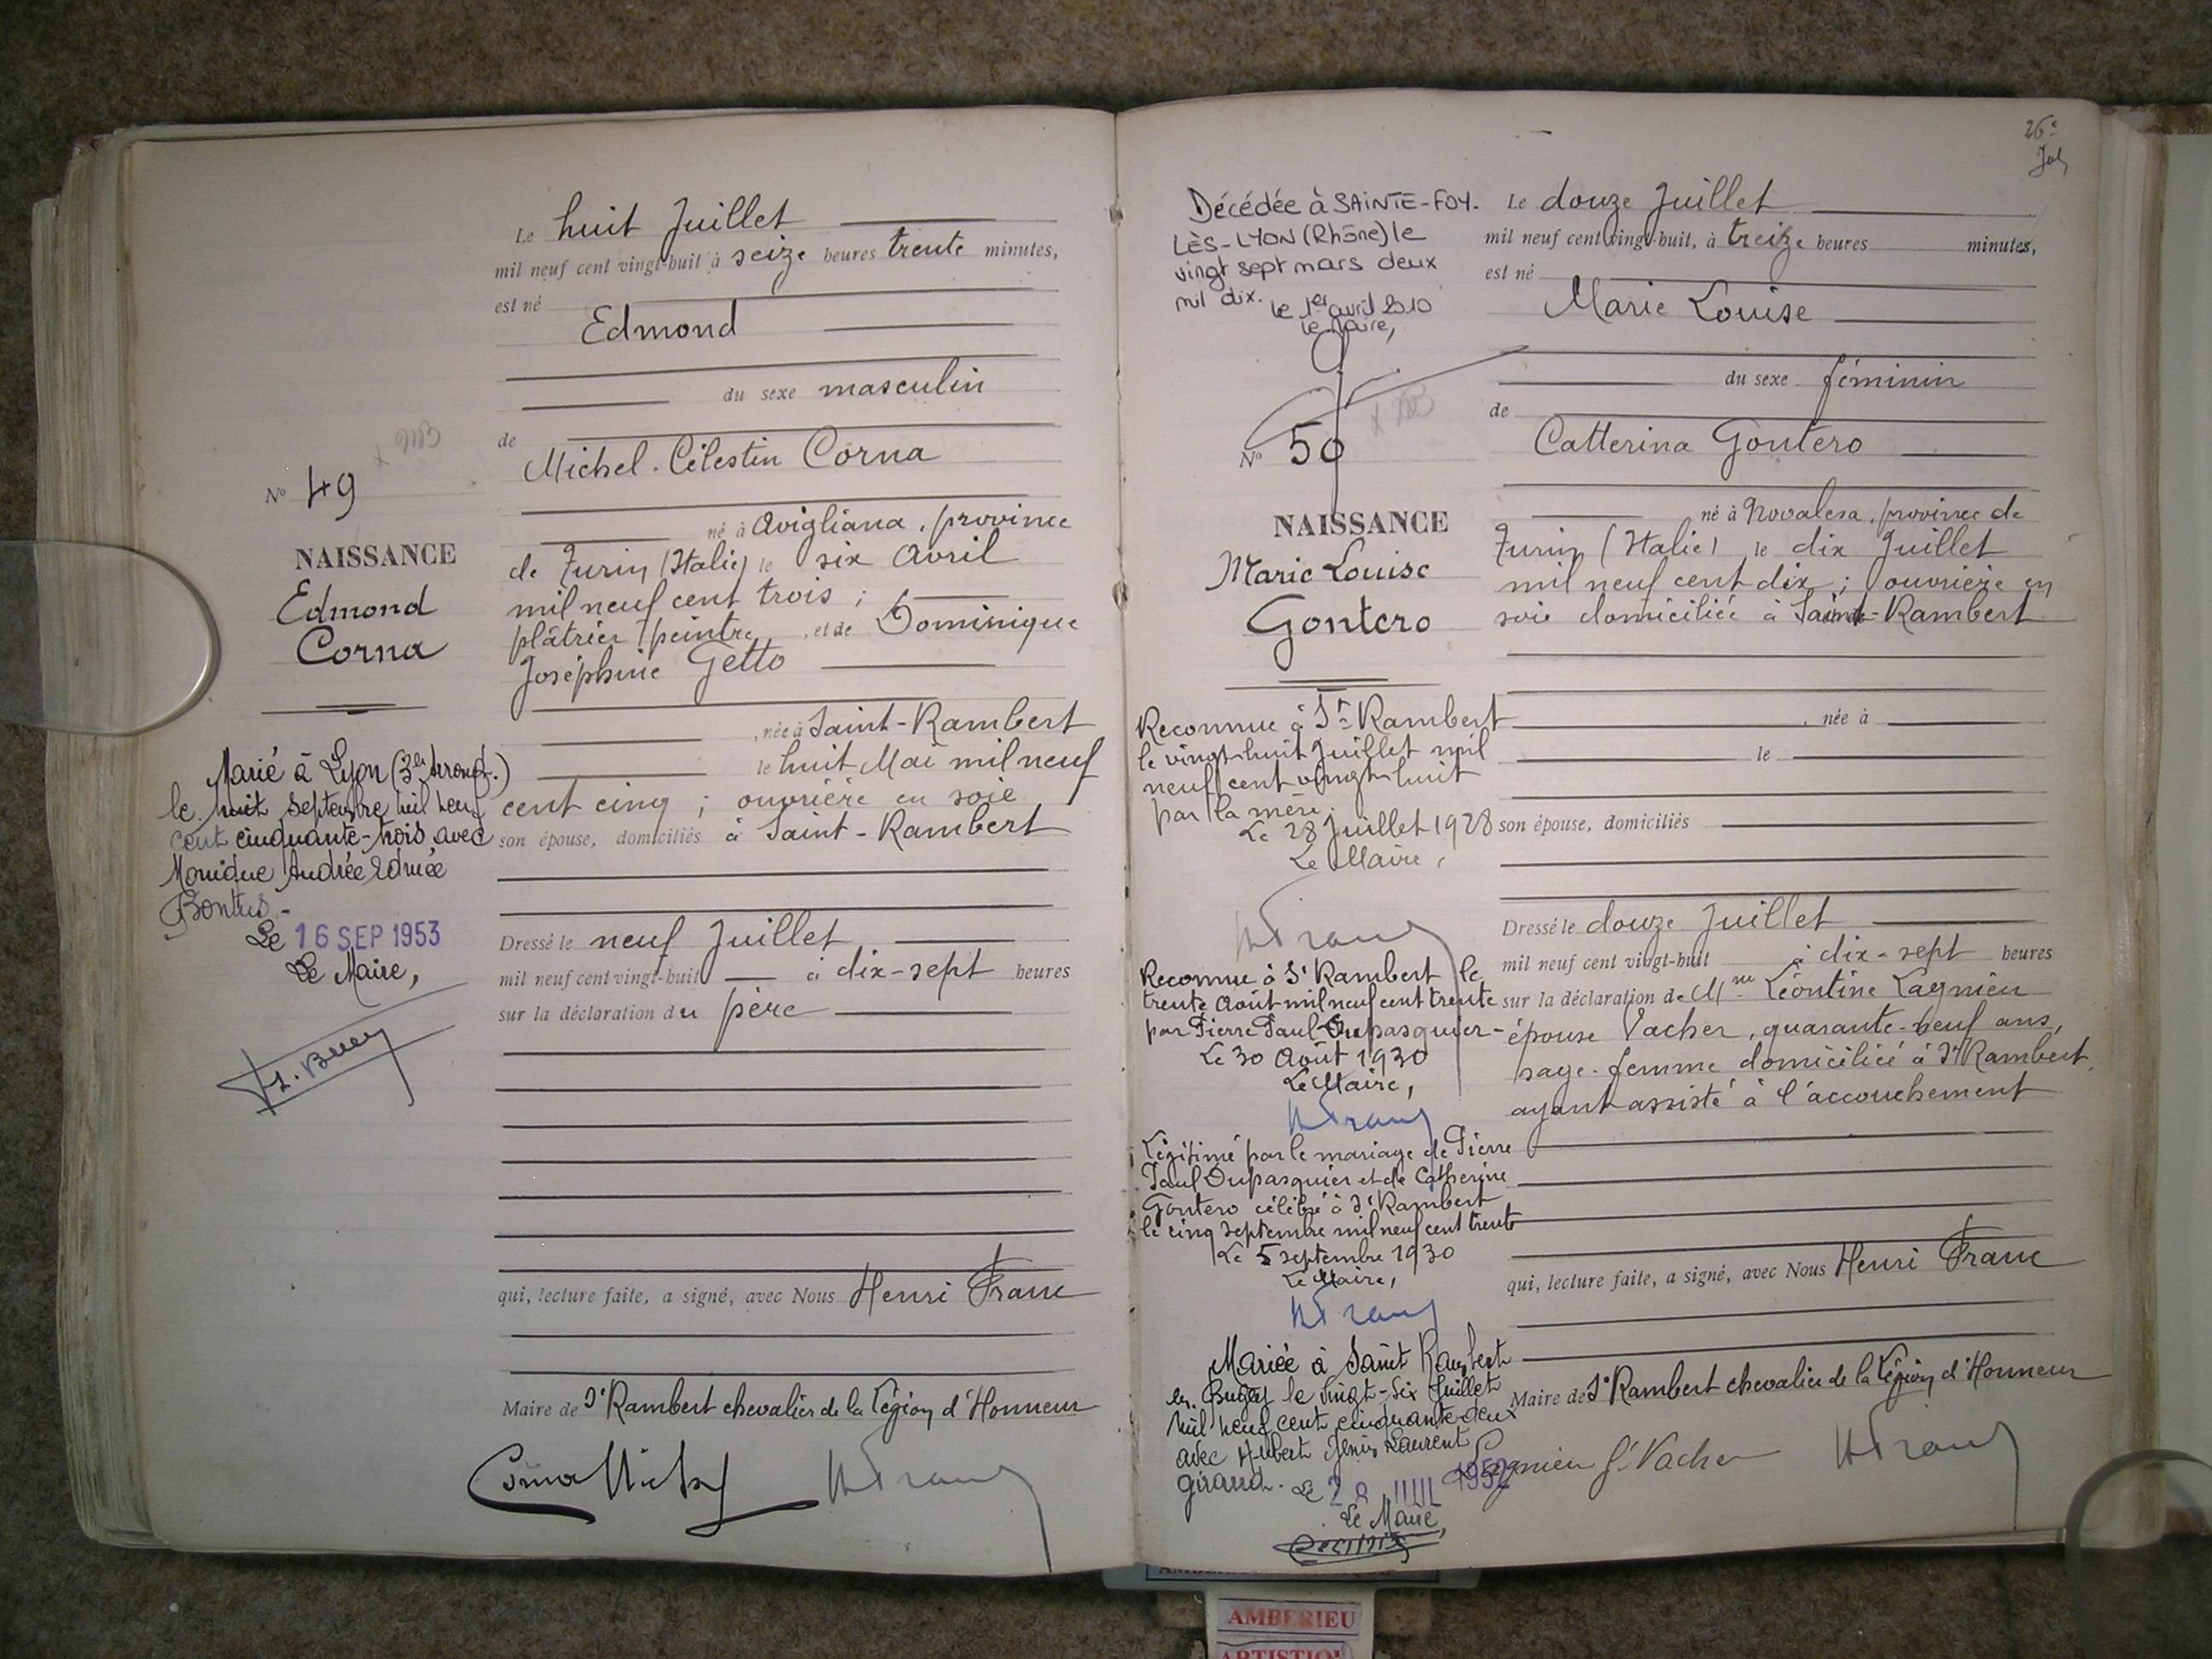 Le huit Juillet
mil neuf cent vingt-huit à seize heures trente minutes,
est né
Edmond
du sexe masculin
de
Michel. Célestin Corna
né à Avigliana, province
de Turin (Italie) le six Avril
mil neuf cent trois ;
plâtrier peintre, et de Dominique
Joséphine Getto
, née à Saint-Rambert
le huit Mai mil neuf
cent cinq ; ouvrière en soie
son épouse, domiciliés à Saint-Rambert
Dressé le neuf Juillet
mil neuf cent vingt-huit à dix-sept heures
sur la déclaration du père
qui, lecture faite, a signé, avec Nous Henri Franc
Maire de St Rambert chevalier de la Légion d'Honneur
Corna Michel
HFranc
No 49
NAISSANCE
Edmond
Corna
Marié à Lyon (3e Arrondt.)
le huit septembre mil neuf
cent cinquante-trois avec
Monique Andrée Edmée
Bontus -
Le 16 SEP 1953
Le Maire,
26e
Décédée à SAINTE-FOY-
LÈS-LYON (Rhône) le
vingt sept mars deux
mil dix.
le 1er avril 2010
le Maire,
No 50
NAISSANCE
Marie Louise
Gontero
Reconnue à St Rambert
le vingt-huit Juillet mil
neuf cent vingt-huit
par la mère.
Le 28 Juillet 1928
Le Maire,
HFranc
Reconnue à St Rambert le
trente Août mil neuf cent trente
par Pierre Paul Dupasquier-
Le 30 Août 1930
Le Maire,
HFranc
Légitimé par le mariage de Pierre
Paul Dupasquier et de Catherine
Gontero célébré à St Rambert
le cinq septembre mil neuf cent trente
Le 5 septembre 1930
Le Maire,
HFranc
Mariée à Saint Rambert
en Bugey le vingt-six Juillet
mil neuf cent cinquante-deux
avec Hubert Denis Laurent
Giraud. Le 28 JUIL 1952
Le Maire,
Le douze Juillet
mil neuf cent vingt-huit, à treize heures minutes,
est né
Marie Louise
du sexe féminin
de
Catterina Gontero
né à Novalesa, province de
Turin (Italie) le dix Juillet
mil neuf cent dix ; ouvrière en
soie domiciliée à Saint-Rambert
, née à
le
son épouse, domiciliés
Dressé le douze Juillet
mil neuf cent vingt-huit à dix-sept heures
sur la déclaration de Mme Léontine Lagnieu
épouse Vacher, quarante-neuf ans,
sage-femme domiciliée à St Rambert,
ayant assisté à l'accouchement
qui, lecture faite, a signé, avec Nous Henri Franc
Maire de St Rambert chevalier de la Légion d'Honneur
Lagnieu f. Vacher
HFranc
AMBERIEU